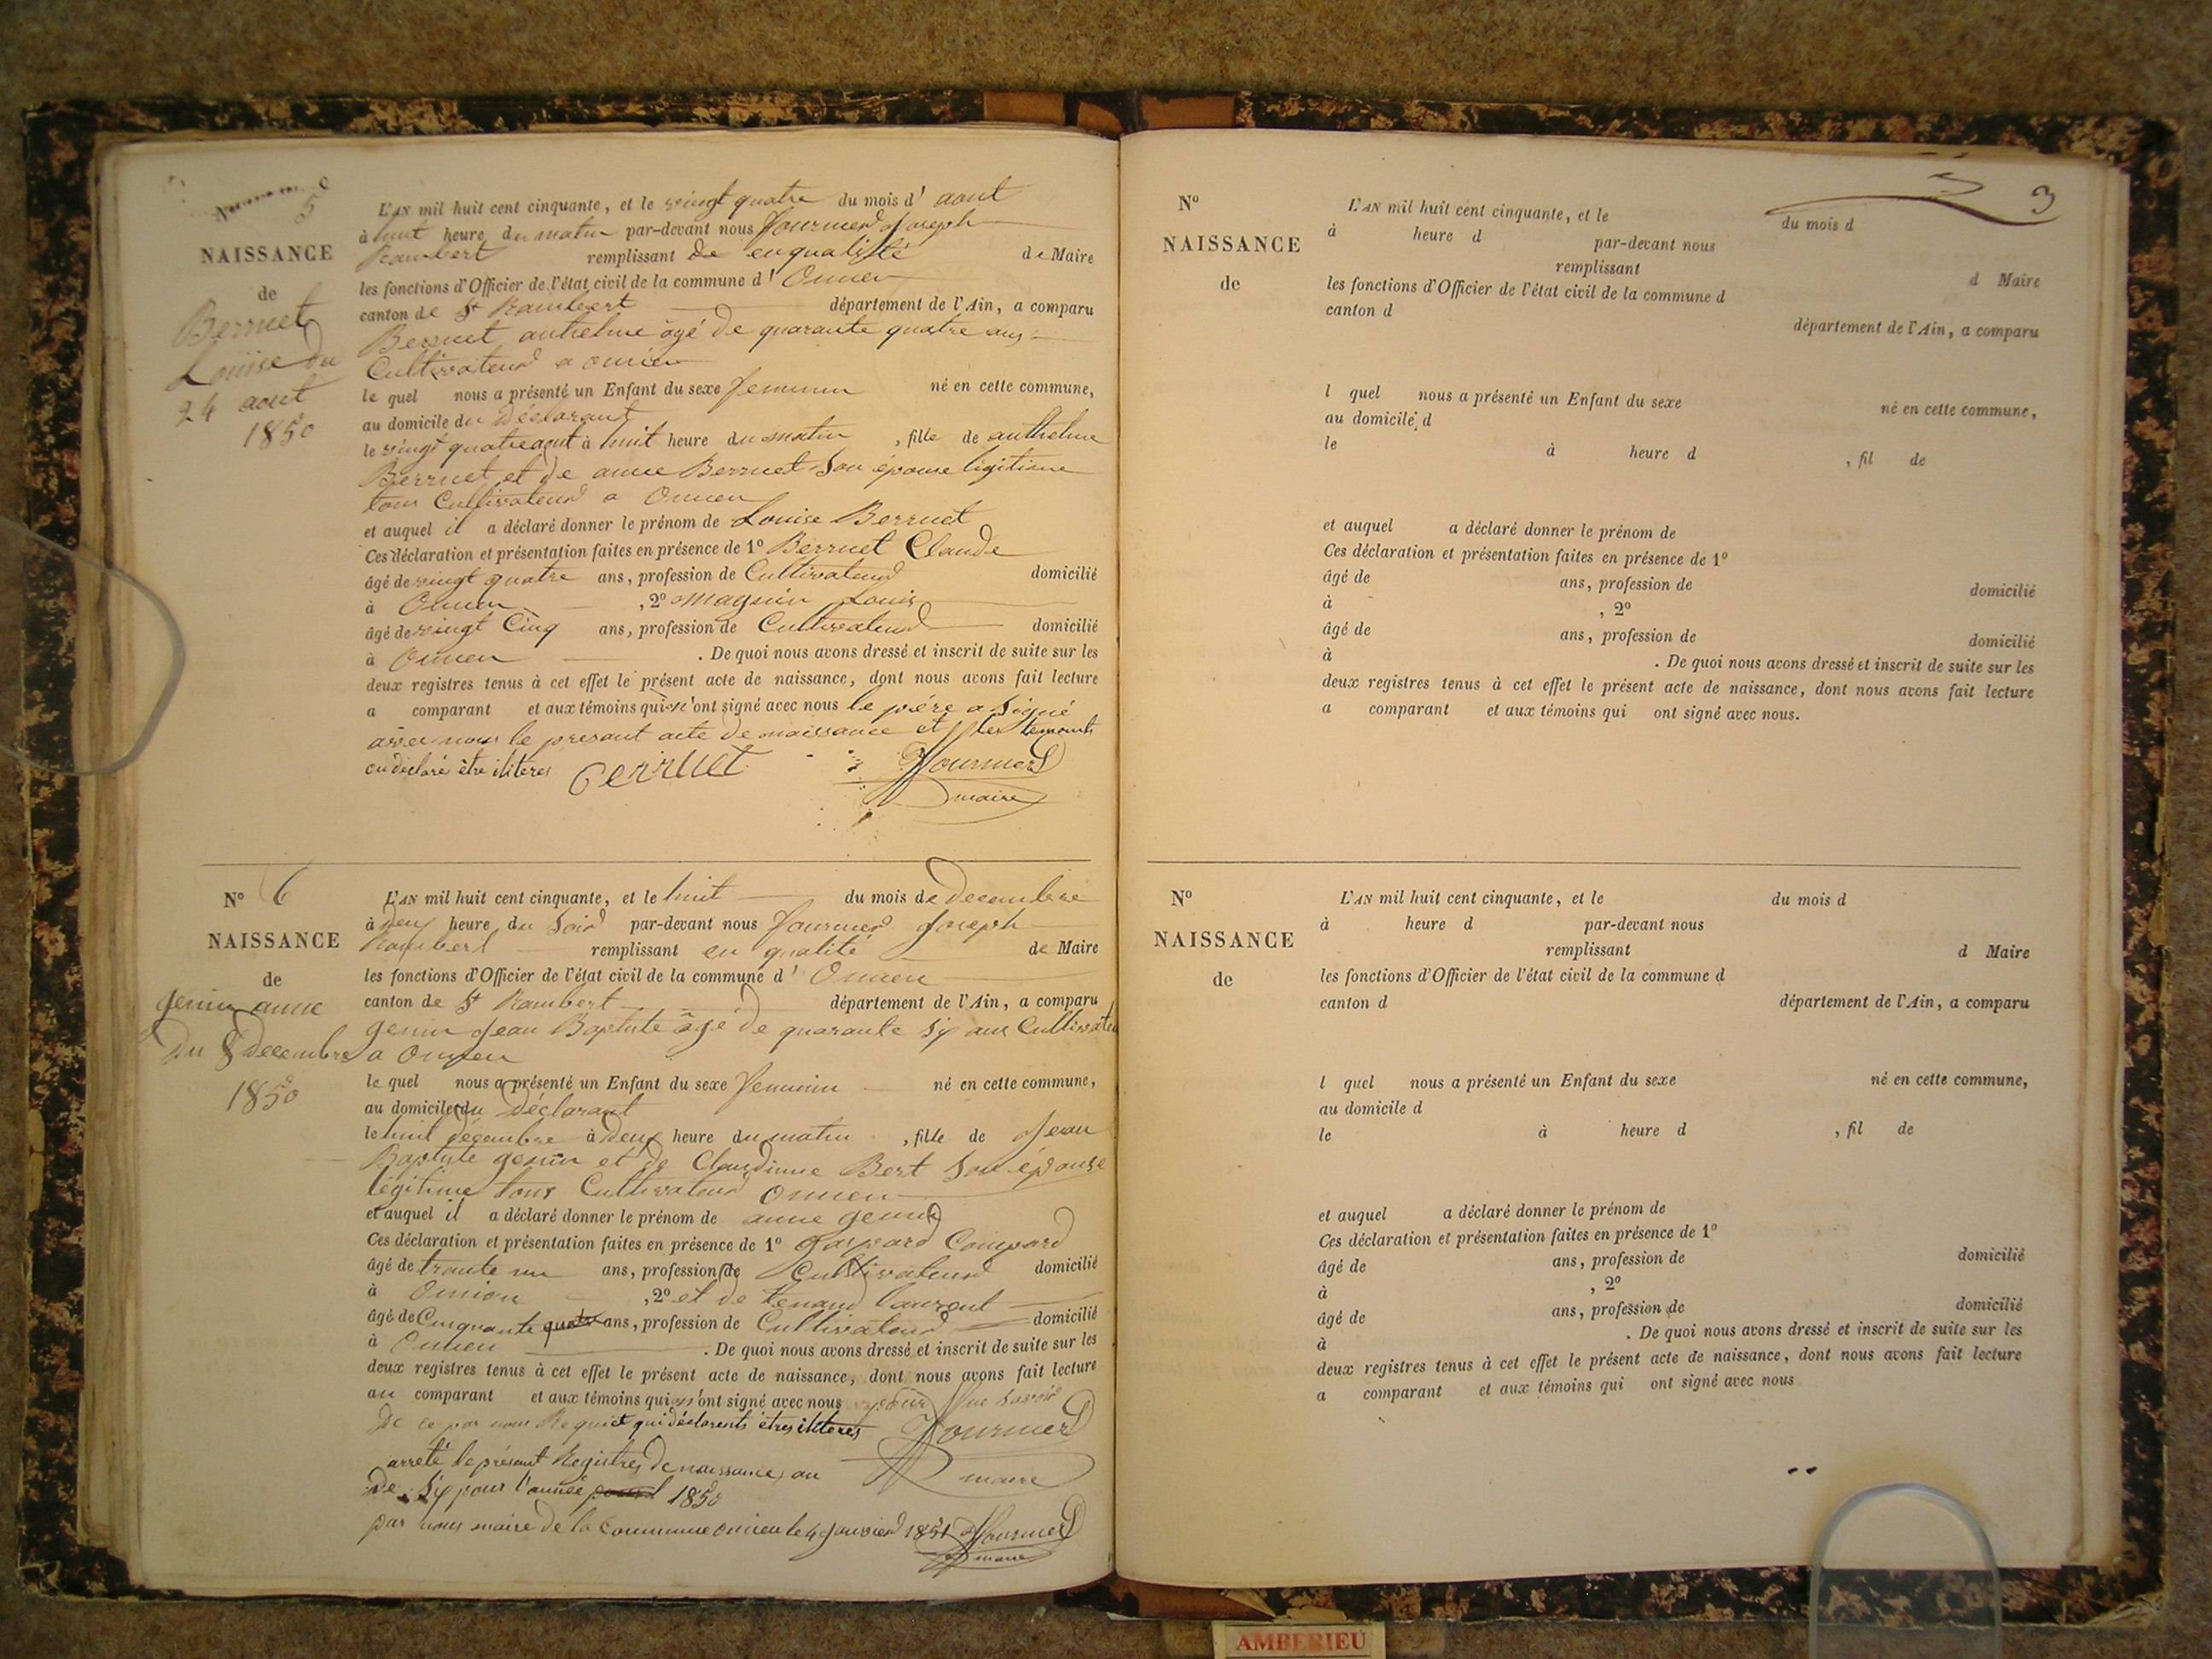 5
NAISSANCE
de
Berruet
Louise du
24 aout
1850
L'AN mil huit cent cinquante, et le vingt quatre du mois d' aout
à huit heure du matin par-devant nous fournier Joseph
Rambert remplissant de en qualité de Maire
les fonctions d'Officier de l'état civil de la commune d' Oncieu
canton de St Rambert département de l'Ain, a comparu
Berruet anthelme âgé de quarante quatre ans
Cultivateur a oncieu
le quel nous a présenté un Enfant du sexe feminin né en cette commune,
au domicile du Déclarant
le vingt quatre aout à huit heure du matin, fille de anthelme
Berruet et de anne Berruet Son épouse ligitime
tous Cultivateurs a Oncieu
et auquel il a déclaré donner le prénom de Louise Berruet
Ces déclaration et présentation faites en présence de 1° Berruet Claude
âgé de vingt quatre ans, profession de Cultivateur domicilié
à Oncieu, 2° Magnin Louis
âgé de vingt Cinq ans, profession de Cultivateur domicilié
à Oncieu. De quoi nous avons dressé et inscrit de suite sur les
deux registres tenus à cet effet le présent acte de naissance, dont nous avons fait lecture
a comparant et aux témoins qui n'ont signé avec nous le père a Signé
avec nous le presant acte de naissance et les temoints
on déclaré être iliteres Berruet fournier
maire
N° 6
NAISSANCE
de
genin anne
Du 8 decembre
1850
L'AN mil huit cent cinquante, et le huit du mois de decembre
à deux heure du Soir par-devant nous fournier Joseph
Rambert remplissant en qualité de Maire
les fonctions d'Officier de l'état civil de la commune d' Oncieu
canton de St Rambert département de l'Ain, a comparu
genin Jean Baptiste âgé de quarante six ans Cultivateu
a Oncieu
le quel nous a présenté un Enfant du sexe feminin né en cette commune,
au domicile du Déclarant
le huit decembre à Deux heure du matin, fille de Jean
Baptiste genin et de Claudinne Bert Son épouse
légitime tous Cultivateur Oncieu
et auquel il a déclaré donner le prénom de anne genin
Ces déclaration et présentation faites en présence de 1° gaspard
âgé de trante un ans, profession de Cultivateur domicilié
à Oncieu, 2° et de tenand laurent
âgé de Cinquante quatre ans, profession de Cultivateur domicilié
à Oncieu. De quoi nous avons dressé et inscrit de suite sur les
deux registres tenus à cet effet le présent acte de naissance, dont nous avons fait lecture
au comparant et aux témoins qui n'ont signé avec nous pour ne Savoir
De ce par nous Requiet qui déclarents êtres iliteres fournier
arrêté le présant Registres de naissances au maire
De Six pour l'année 1850
par nous maire de la Commune oncieu le 4 Janvier 1851 fournier
maire
3
N°
NAISSANCE
de
L'AN mil huit cent cinquante, et le du mois d
à heure d par-devant nous
remplissant d Maire
les fonctions d'Officier de l'état civil de la commune d
canton d département de l'Ain, a comparu
l quel nous a présenté un Enfant du sexe né en cette commune,
au domicile d
le à heure d, fil de
et auquel a déclaré donner le prénom de
Ces déclaration et présentation faites en présence de 1°
âgé de ans, profession de domicilié
à, 2°
âgé de ans, profession de domicilié
à. De quoi nous avons dressé et inscrit de suite sur les
deux registres tenus à cet effet le présent acte de naissance, dont nous avons fait lecture
a comparant et aux témoins qui ont signé avec nous.
N°
NAISSANCE
de
L'AN mil huit cent cinquante, et le du mois d
à heure d par-devant nous
remplissant d Maire
les fonctions d'Officier de l'état civil de la commune d
canton d département de l'Ain, a comparu
l quel nous a présenté un Enfant du sexe né en cette commune,
au domicile d
le à heure d, fil de
et auquel a déclaré donner le prénom de
Ces déclaration et présentation faites en présence de 1°
âgé de ans, profession de domicilié
à, 2°
âgé de ans, profession de domicilié
à. De quoi nous avons dressé et inscrit de suite sur les
deux registres tenus à cet effet le présent acte de naissance, dont nous avons fait lecture
a comparant et aux témoins qui ont signé avec nous
AMBERIEU